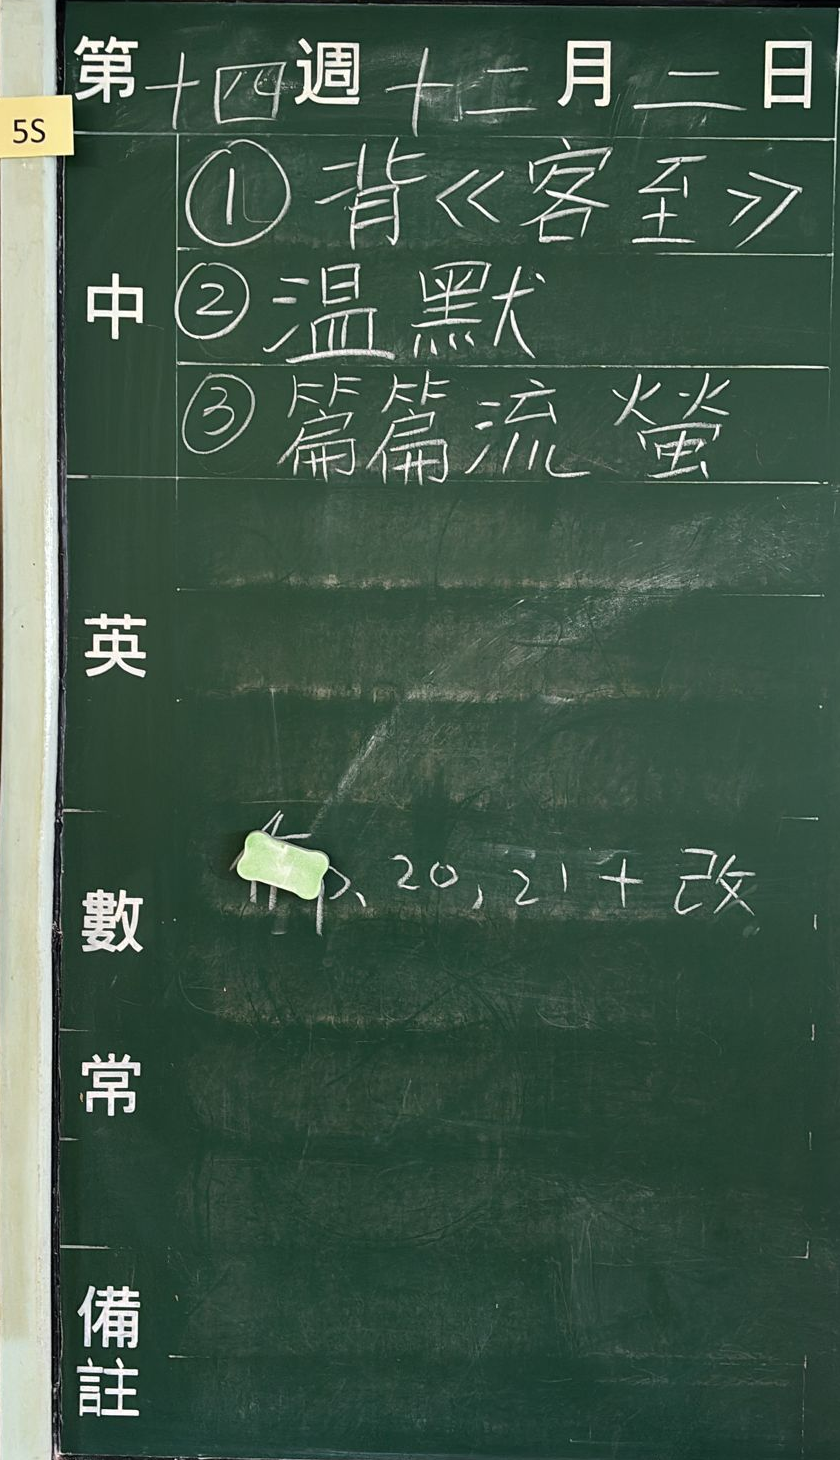 第十四週十二月二日
5S
中
①背《客至》
②温默
③篇篇流螢
英
數
、20,21+改
常
備註